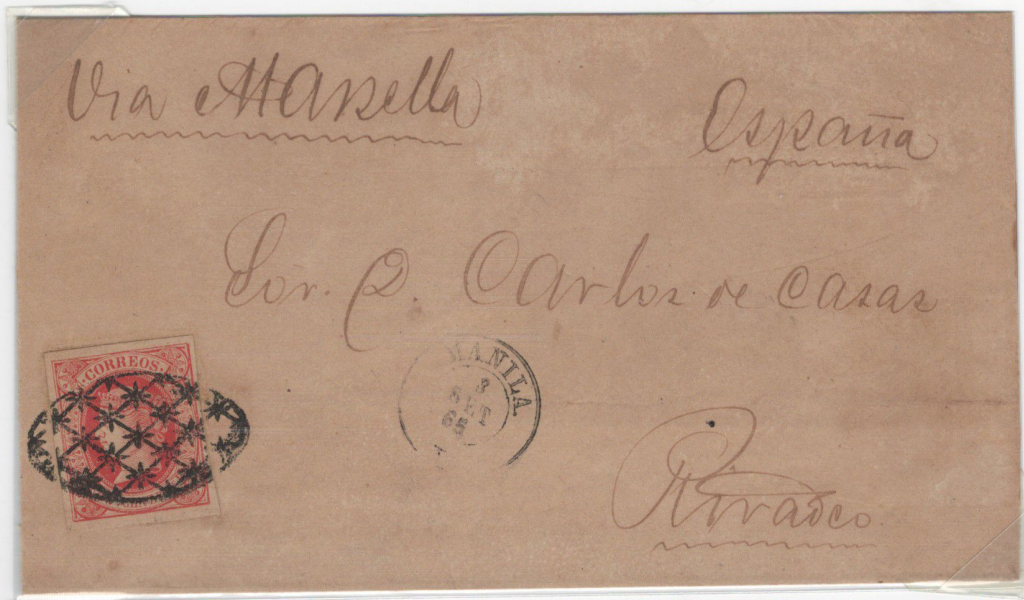 Via Marsella
España
Sor. D. Carlos de Casas
CORREOS
MANILA
3
SET
65
Rivadeo